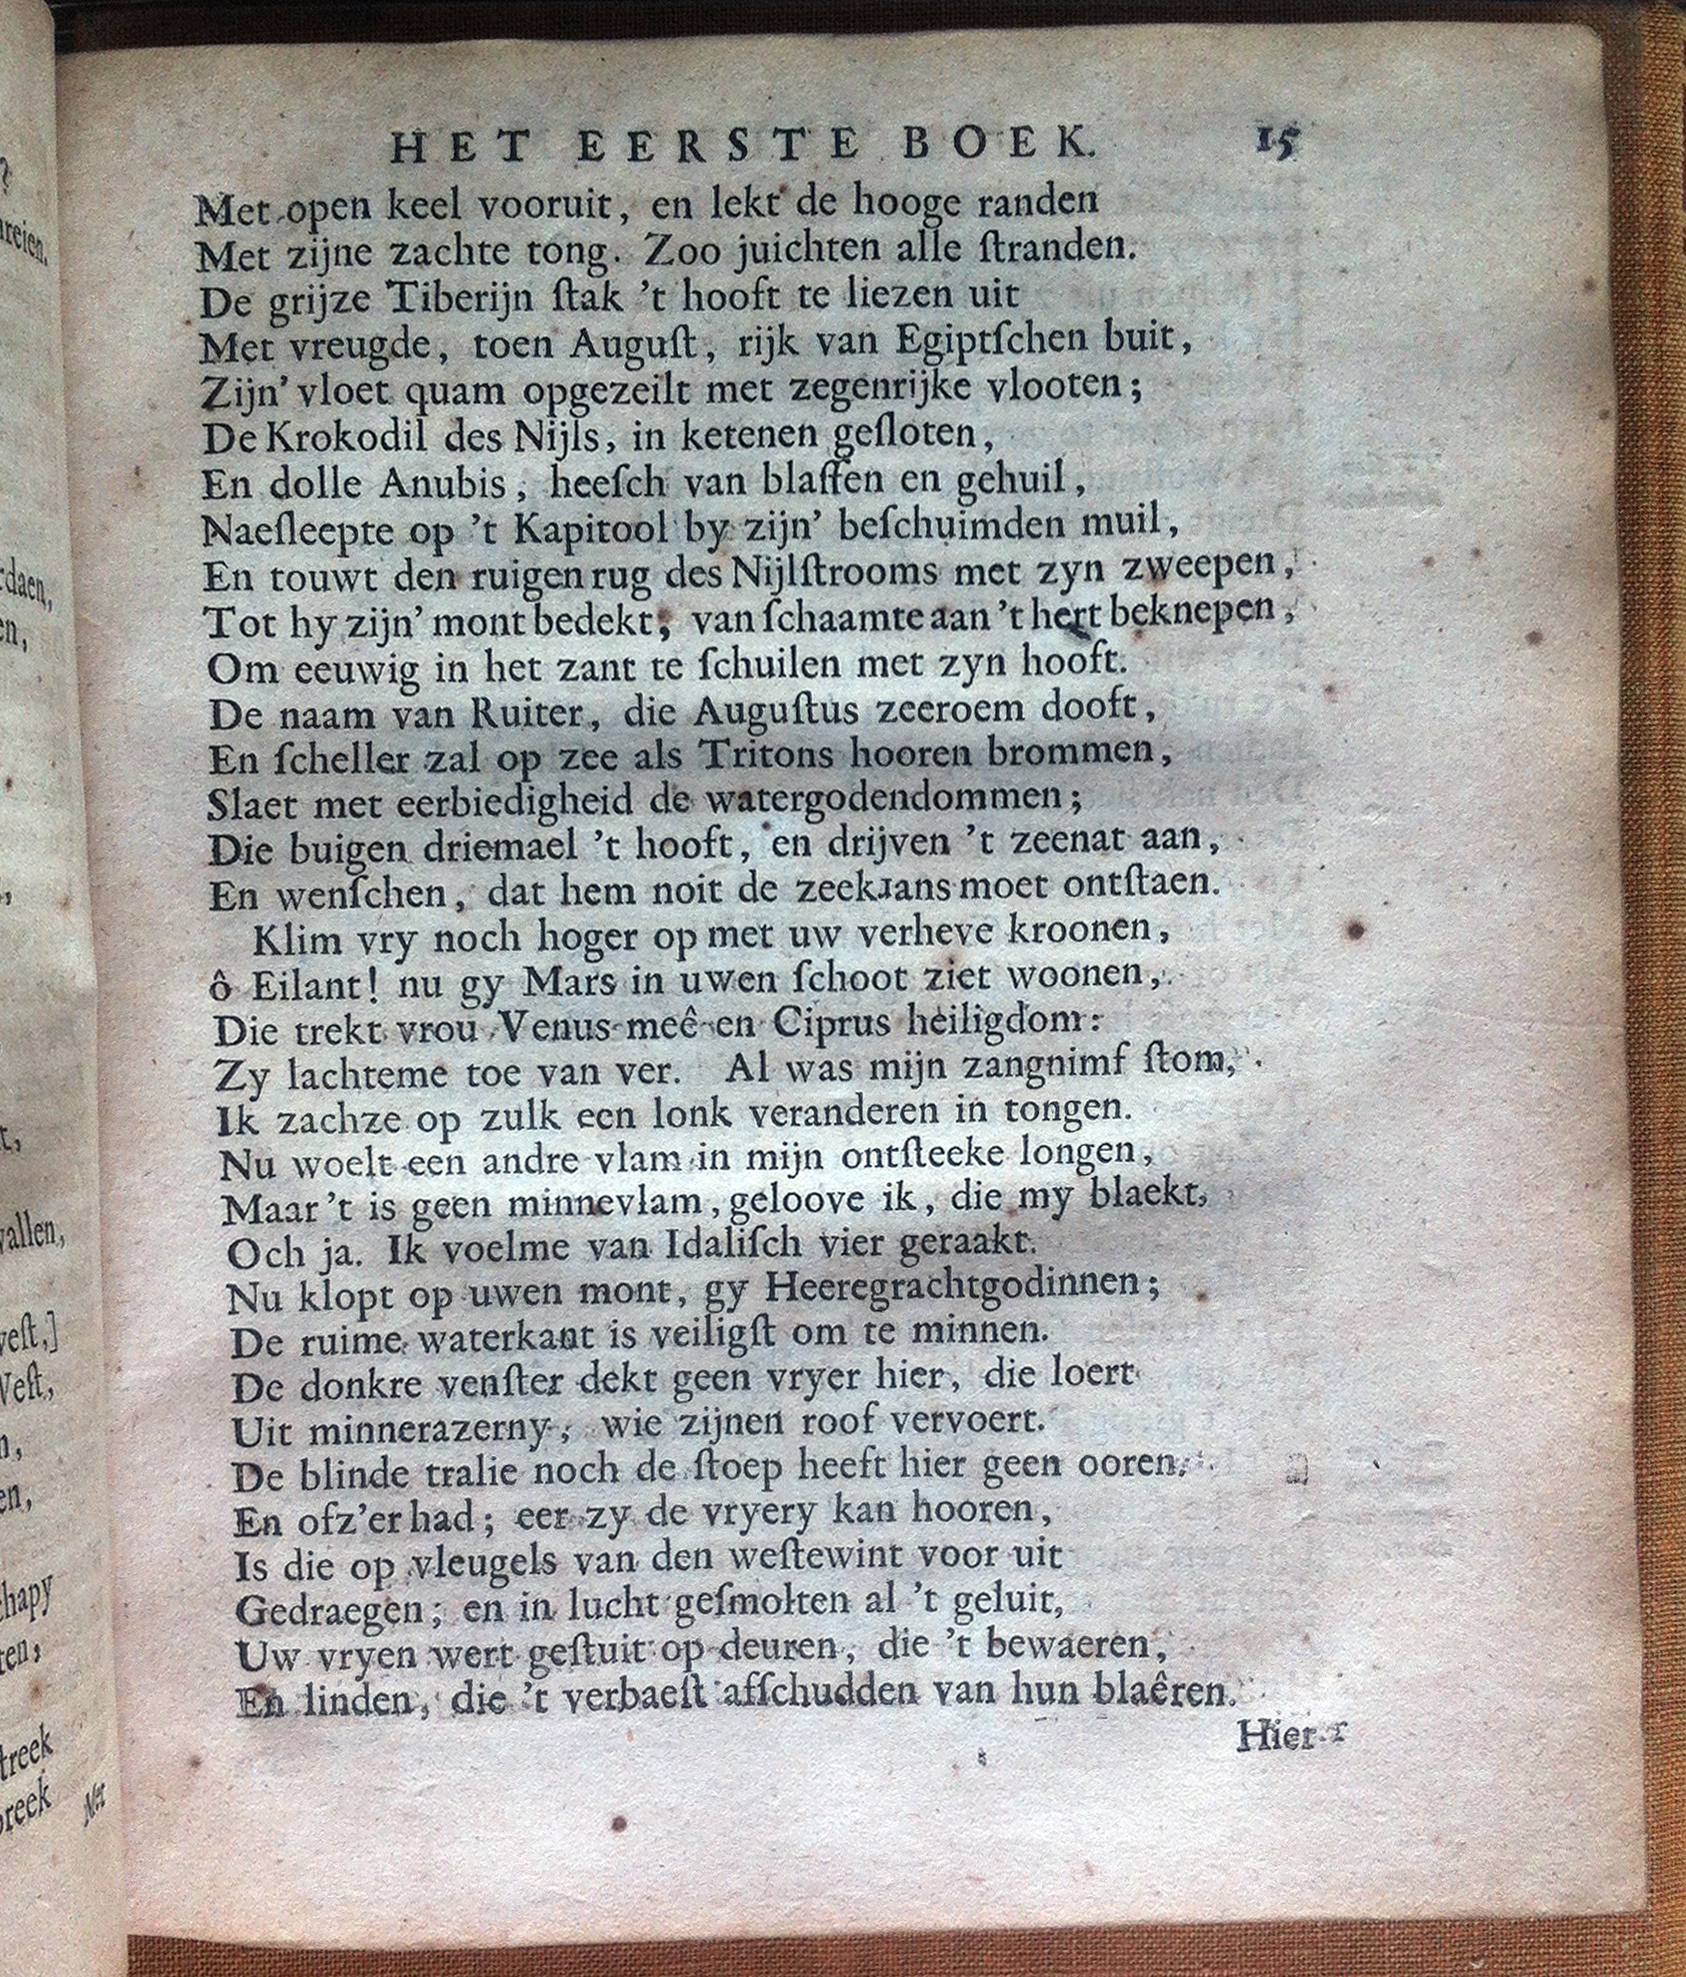 HET EERSTE BOEK. 15
Met open keel vooruit, en lekt de hooge randen
Met zijne zachte tong. Zoo juichten alle ſtranden.
De grijze Tiberijn ſtak 't hooft te liezen uit
Met vreugde, toen Auguſt, rijk van Egiptſchen buit,
Zijn' vloet quam opgezeilt met zegenrijke vlooten;
De Krokodil des Nijls, in ketenen geſloten,
En dolle Anubis, heeſch van blaffen en gehuil,
Naeſleepte op 't Kapitool by zijn' beſchuimden muil,
En touwt den ruigen rug des Nijlſtrooms met zyn zweepen,
Tot hy zijn' mont bedekt, van ſchaamte aan 't hert beknepen,
Om eeuwig in het zant te ſchuilen met zyn hooft.
De naam van Ruiter, die Auguſtus zeeroem dooft,
En ſcheller zal op zee als Tritons hooren brommen,
Slaet met eerbiedigheid de watergodendommen;
Die buigen driemael 't hooft, en drijven 't zeenat aan,
En wenſchen, dat hem noit de zeekrans moet ontſtaen.
Klim vry noch hoger op met uw verheve kroonen,
ô Eilant! nu gy Mars in uwen ſchoot ziet woonen,
Die trekt vrou Venus meê en Ciprus heiligdom:
Zy lachteme toe van ver. Al was mijn zangnimf ſtom,
Ik zachze op zulk een lonk veranderen in tongen.
Nu woelt een andre vlam in mijn ontſteeke longen,
Maar 't is geen minnevlam, geloove ik, die my blaekt,
Och ja. Ik voelme van Idaliſch vier geraakt.
Nu klopt op uwen mont, gy Heeregrachtgodinnen;
De ruime waterkant is veiligſt om te minnen.
De donkre venſter dekt geen vryer hier, die loert
Uit minnerazerny, wie zijnen roof vervoert.
De blinde tralie noch de ſtoep heeft hier geen ooren.
En ofz'er had; eer zy de vryery kan hooren,
Is die op vleugels van den weſtewint voor uit
Gedraegen; en in lucht geſmolten al 't geluit,
Uw vryen wert geſtuit op deuren, die 't bewaeren,
En linden, die 't verbaeſt afſchudden van hun blaêren.
Hier
?
reien.
rdaen,
en,
t,
vallen,
veſt,]
Veſt,
n,
en,
chapy
ten,
treek
breek
Met